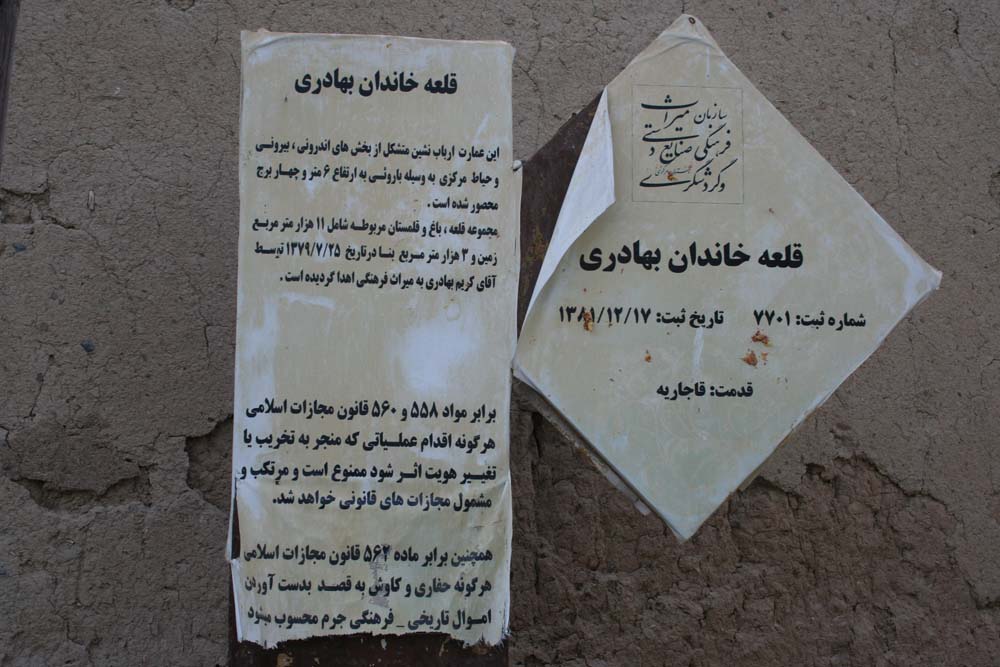 قلعه خاندان بهادری
این عمارت ارباب نشین متشکل از بخش های اندرونی ، بیرونی
و حیاط مرکزی به وسیله باروئی به ارتفاع ۶ متر و چهار برج
محصور شده است .
مجموعه قلعه ، باغ و قلمستان مربوطه شامل ۱۱ هزار متر مربع
زمین و ۳ هزار متر مربع بنا در تاریخ ۱۳۷۹/۷/۲۵ توسط
آقای کریم بهادری به میراث فرهنگی اهدا گردیده است .
برابر مواد ۵۵۸ و ۵۶۰ قانون مجازات اسلامی
هرگونه اقدام عملیاتی که منجر به تخریب یا
تغییر هویت اثر شود ممنوع است و مرتکب و
مشمول مجازات های قانونی خواهد شد.
همچنین برابر ماده ۵۶۲ قانون مجازات اسلامی
هرگونه حفاری و کاوش به قصد بدست آوردن
اموال تاریخی _ فرهنگی جرم محسوب میشود
سازمان میراث
فرهنگی صنایع دستی
و گردشگری
قلعه خاندان بهادری
شماره ثبت: ۷۷۰۱ تاریخ ثبت: ۱۳۸۱/۱۲/۱۷
قدمت: قاجاریه